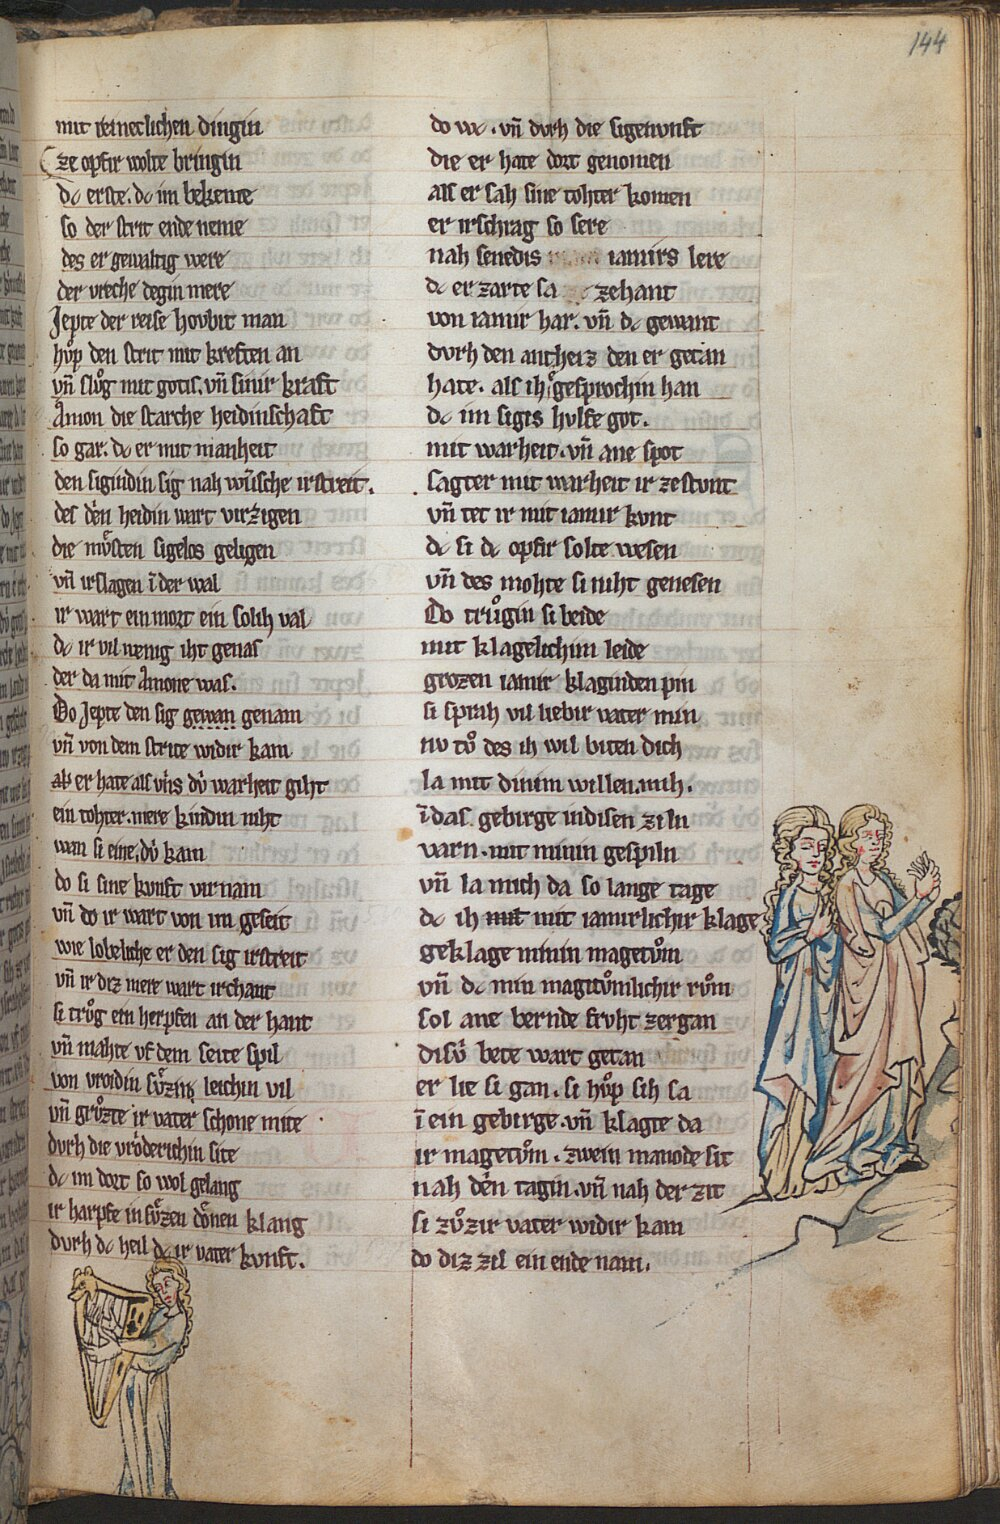 144
mit reineclichen dingin
ze opfir wolte bringin
dc erste. dc im bekeme
so der strit ende neme
des er gewaltig were
der vreche degin mere
Jepte der reise hovbit man
hůp den strit mit kreften an
vn̄ slůg mit gotis. vn̄ sinir kraft
Amon die starche heidinschaft
so gar. dc er mit manheit
den sigindin sig nah wu̍sche irstreit.
des den heidin wart virzigen
die mu̍sten sigelos geligen
vn̄ irslagen ī der wal
ir wart ein mort ein solih val
dc ir vil wenig iht genas
der da mit Amone was.
Do Jepte den sig gewan genam
vn̄ von dem strite widir kam
ab er hate als vns dv̍ warheit giht
ein tohter. mere kindin niht
wan si eine, dv̍ kam
do si sine kvnft virnam
vn̄ do ir wart von im geseit
wie lobeliche er den sig irstreit
vn̄ ir diz mere wart irchant
si trůg ein herpfen an der hant
vn̄ mahte vf dem seite spil
von vroidin sv̊zin leichin vil
vn̄ grůzte ir vater schone mite
dvrh die vrȯderichin site
dc im dort so wol gelang
ir harpfe in sv̊zen dȯnen klang
dvrh dc heil dc ir vater kvnft.
do wc. vn̄ dvrh die sigenvnft
die er hate dort genomen
als er sah sine tohter komen
er irschrag so sere
nah senedis iamirs lere
dc er zarte sa zehant
von iamir har. vn̄ dc gewant
dvrh den antheiz den er getan
hate. als ih gesprochin han
dc im siges hvlfe got.
mit warheit. vn̄ ane spot
sagter mit warheit ir zestvnt
vn̄ tet ir mit iamir kvnt
dc si dc opfir solte wesen
vn̄ des mohte si niht genesen
Do trůgin si beide
mit klagelichim leide
grozen iamir klaginden pin
si sprah vil liebir vater min
nv tů des ih wil biten dich
la mit dinim willen. mih.
ī das gebirge indisen ziln
varn. mit minin gespiln
vn̄ la mich da so lange tage
dc ih mit mit iamirlichir klage
geklage minin magetům
vn̄ dc min magitůmlichir rům
sol ane bernde frvht zergan
disv̍ bete wart getan
er lie si gan. si hůp sih sa
ī ein gebirge. vn̄ klagte da
ir magetům. zwein manode sit
nah den tagin. vn̄ nah der zit
si zůzir vater widir kam
do diz zil ein ende nam.